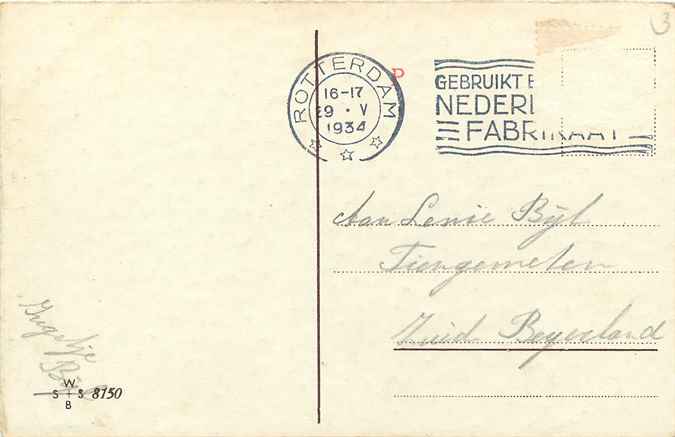 3
ROTTERDAM
16-17
29 · V
1934
P
GEBRUIKT
NEDERL
FABRIKAAT
Aan Lenie Bijl
Tiengemeten
Zuid Beyerland
Ingetje
W
S S 8150
B